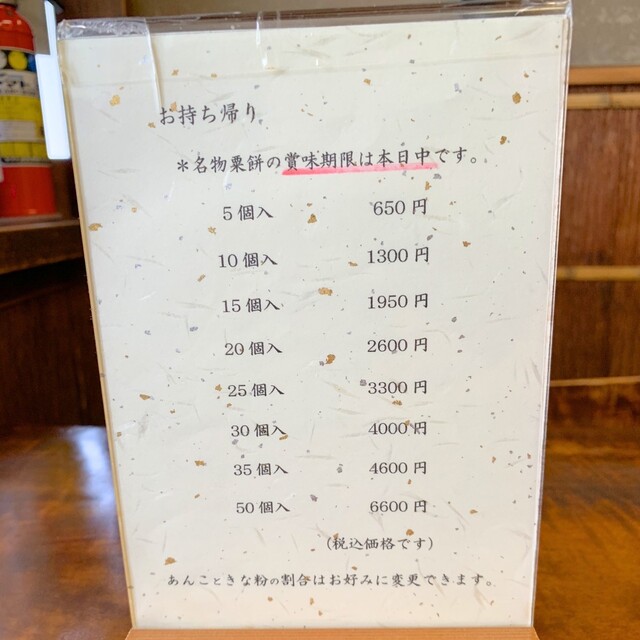 お持ち帰り
＊名物粟餅の賞味期限は本日中です。
5個入 650円
10個入 1300円
15個入 1950円
20個入 2600円
25個入 3300円
30個入 4000円
35個入 4600円
50個入 6600円
(税込価格です)
あんこときな粉の割合はお好みに変更できます。